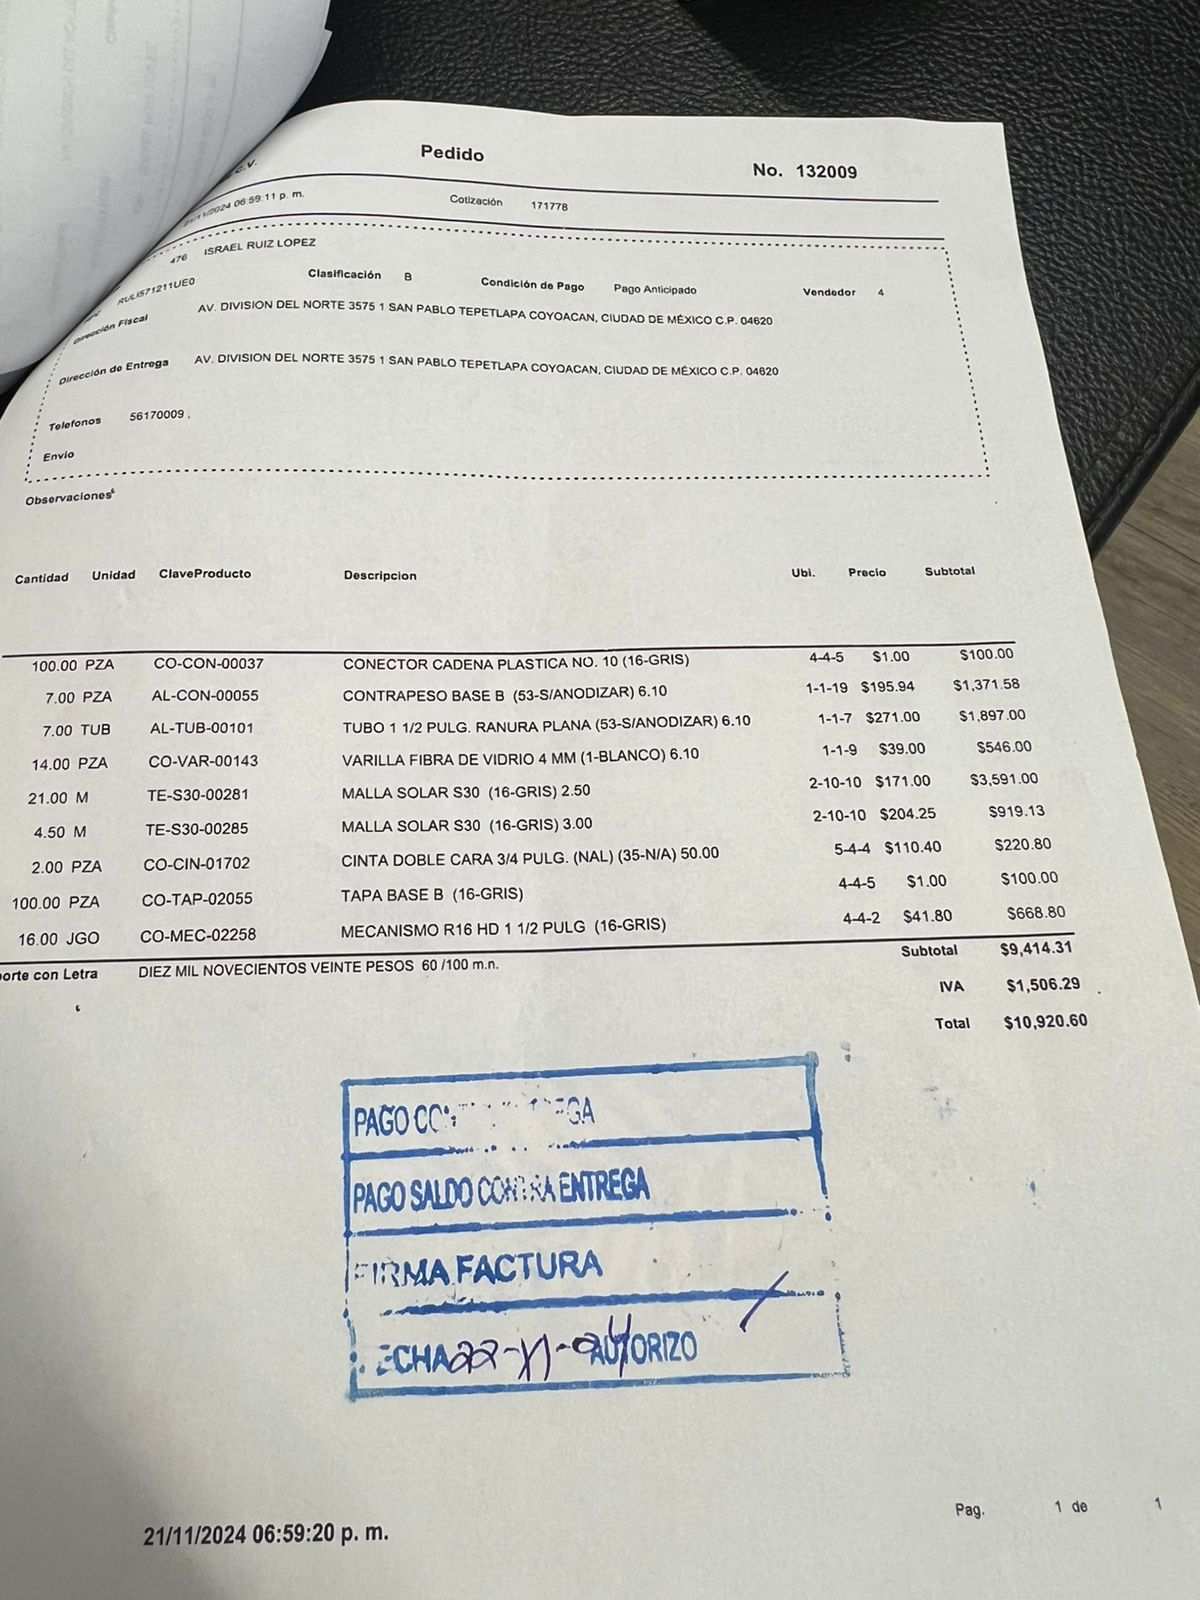 C.V. Pedido No. 132009
/11/2024 06:59:11 p. m. Cotización 171778
476 ISRAEL RUIZ LOPEZ
RULI571211UE0 Clasificación B Condición de Pago Pago Anticipado Vendedor 4
Dirección Fiscal AV. DIVISION DEL NORTE 3575 1 SAN PABLO TEPETLAPA COYOACAN, CIUDAD DE MÉXICO C.P. 04620
Dirección de Entrega AV. DIVISION DEL NORTE 3575 1 SAN PABLO TEPETLAPA COYOACAN, CIUDAD DE MÉXICO C.P. 04620
Telefonos 56170009 ,
Envio
Observaciones
Cantidad Unidad ClaveProducto Descripcion Ubi. Precio Subtotal
100.00 PZA CO-CON-00037 CONECTOR CADENA PLASTICA NO. 10 (16-GRIS) 4-4-5 $1.00 $100.00
7.00 PZA AL-CON-00055 CONTRAPESO BASE B (53-S/ANODIZAR) 6.10 1-1-19 $195.94 $1,371.58
7.00 TUB AL-TUB-00101 TUBO 1 1/2 PULG. RANURA PLANA (53-S/ANODIZAR) 6.10 1-1-7 $271.00 $1,897.00
14.00 PZA CO-VAR-00143 VARILLA FIBRA DE VIDRIO 4 MM (1-BLANCO) 6.10 1-1-9 $39.00 $546.00
21.00 M TE-S30-00281 MALLA SOLAR S30 (16-GRIS) 2.50 2-10-10 $171.00 $3,591.00
4.50 M TE-S30-00285 MALLA SOLAR S30 (16-GRIS) 3.00 2-10-10 $204.25 $919.13
2.00 PZA CO-CIN-01702 CINTA DOBLE CARA 3/4 PULG. (NAL) (35-N/A) 50.00 5-4-4 $110.40 $220.80
100.00 PZA CO-TAP-02055 TAPA BASE B (16-GRIS) 4-4-5 $1.00 $100.00
16.00 JGO CO-MEC-02258 MECANISMO R16 HD 1 1/2 PULG (16-GRIS) 4-4-2 $41.80 $668.80
orte con Letra DIEZ MIL NOVECIENTOS VEINTE PESOS 60 /100 m.n. Subtotal $9,414.31
IVA $1,506.29
Total $10,920.60
PAGO
PAGO SALDO CONTRA ENTREGA
FIRMA FACTURA
FECHA 22-XI-24 AUTORIZO
Pag. 1 de 1
21/11/2024 06:59:20 p. m.